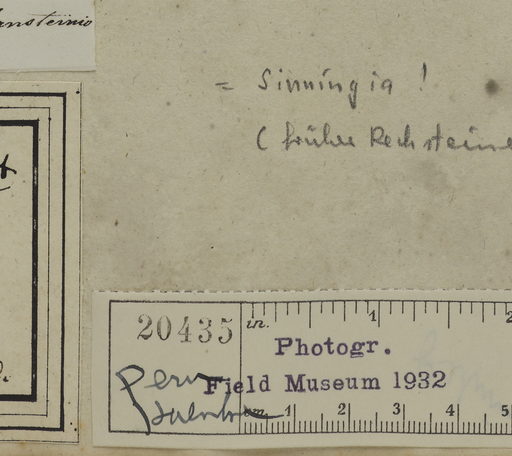 = Sinningia !
( früher Rechsteine
20435
in. 1 2
Photogr.
Field Museum 1932
Peru
cm 1 2 3 4 5